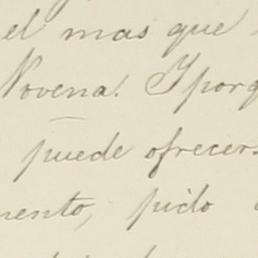 el mas que
Novena. Y porq
puede ofrecer
mento, pido